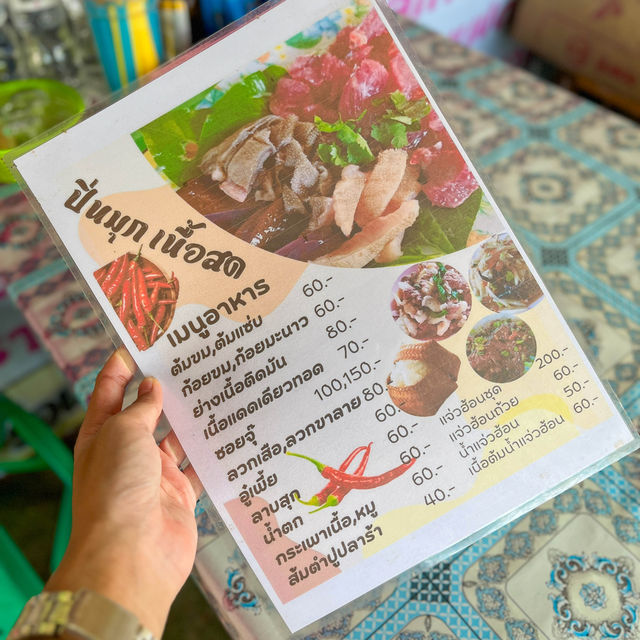 ปิ่นมุก เนื้อสด
เมนูอาหาร
ต้มขม,ต้มแซ่บ 60.-
ก้อยขม,ก้อยมะนาว 60.-
ย่างเนื้อติดมัน 80.-
เนื้อแดดเดียวทอด 70.-
ซอยจุ๊ 100,150.-
ลวกเสือ,ลวกขาลาย 80.-
อู๋เพี้ย 60.-
ลาบสุก 60.-
น้ำตก 60.-
กระเพาเนื้อ,หมู 60.-
ส้มตำปูปลาร้า 40.-
แจ่วฮ้อนชุด 200.-
แจ่วฮ้อนถ้วย 60.-
น้ำแจ่วฮ้อน 50.-
เนื้อต้มน้ำแจ่วฮ้อน 60.-